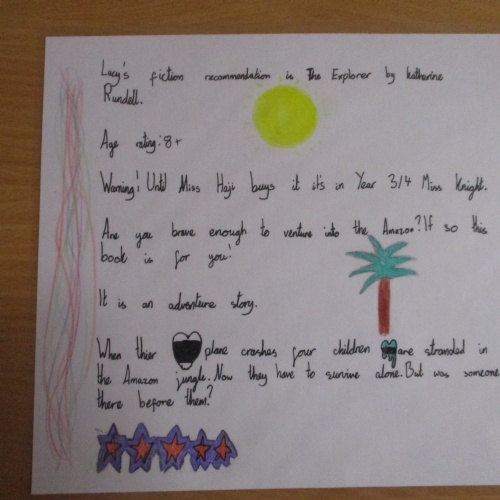 Lacy's fiction recommendation is The Explorer by Katherine
Rundell.
Age rating: 8+
Warning! Until Miss Haji buys it it's in Year 3/4 Miss Knight.
Are you brave enough to venture into the Amazon? If so this
book is for you!
It is an adventure story.
When thier plane crashes four children are stranded in
the Amazon jungle. Now they have to survive alone. But was someone
there before them?